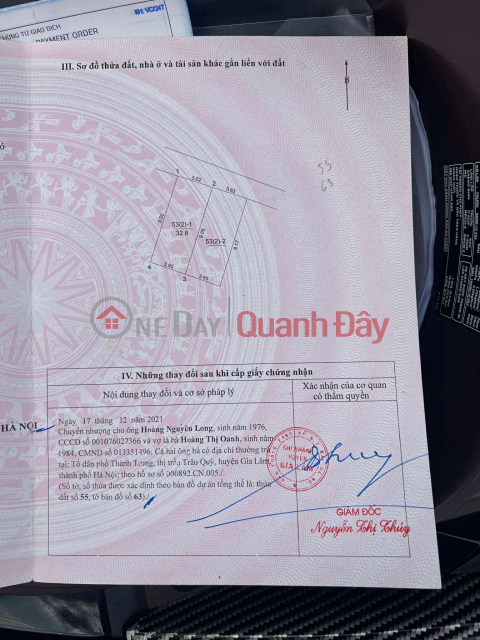 CHỨNG TỪ GIAO DỊCH
PAYMENT ORDER
III. Sơ đồ thửa đất, nhà ở và tài sản khác gắn liền với đất
B
55
63
1
3.62
2
3.63
9.00
53(2)-1
32.8
9.08
53(2)-2
9.17
4
3.66
3
3.65
ONE DAY Quanh Đây
IV. Những thay đổi sau khi cấp giấy chứng nhận
Nội dung thay đổi và cơ sở pháp lý
Xác nhận của cơ quan
có thẩm quyền
HÀ NỘI
Ngày 17 tháng 12 năm 2021
Chuyển nhượng cho ông Hoàng Nguyên Long, sinh năm 1976,
CCCD số 001076027366 và vợ là bà Hoàng Thị Oanh, sinh năm
1984, CMND số 013351496; Cả hai ông bà có địa chỉ thường trú
tại: Tổ dân phố Thành Trung, thị trấn Trâu Quỳ, huyện Gia Lâm,
thành phố Hà Nội; theo hồ sơ số 000892.CN.005./
(Số tờ, số thửa được xác định theo bản đồ dự án tổng thể là: thửa
đất số 55, tờ bản đồ số 63)./
CHI NHÁNH
HUYỆN
GIA LÂM
GIÁM ĐỐC
Nguyễn Thị Thúy